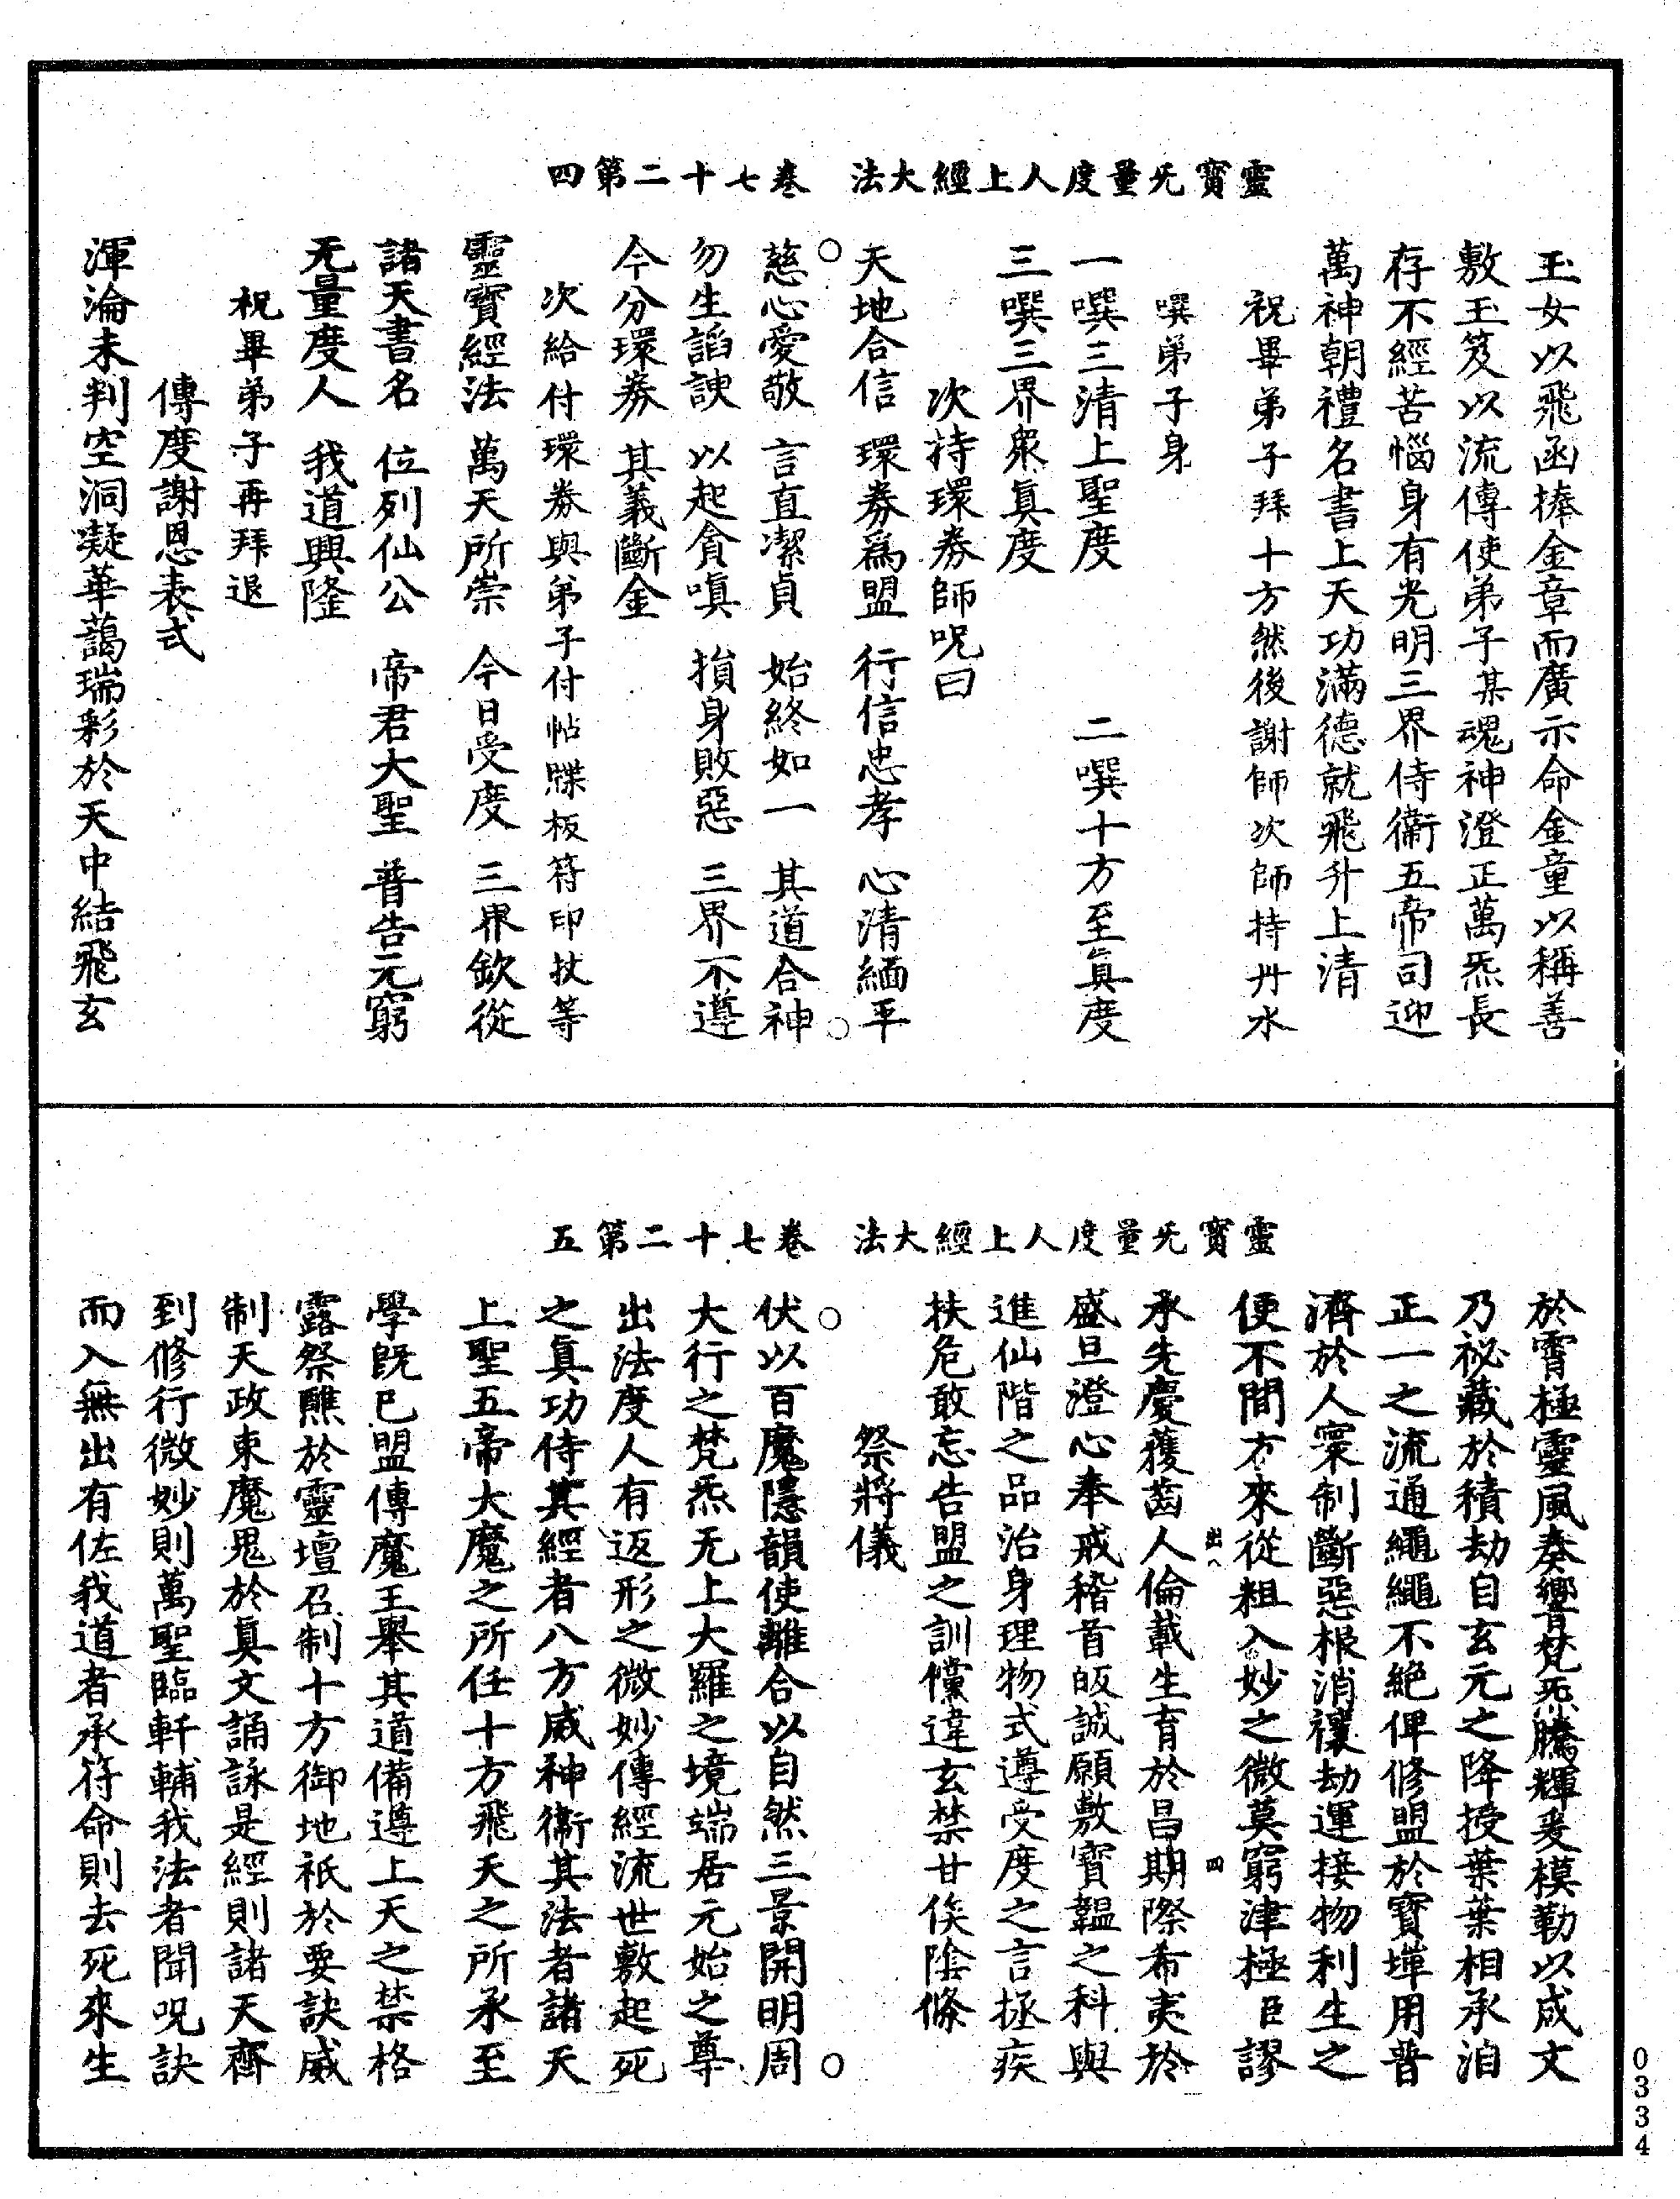 靈寶旡量度人上經大法　卷七十二第四
玉女以飛函捧金章而廣示命金童以稱善
敷玉笈以流傳使弟子某魂神澄正萬炁長
存不經苦惱身有光明三界侍衛五帝司迎
萬神朝禮名書上天功滿德就飛升上清
祝畢弟子拜十方然後謝師次師持丹水
噀弟子身
一噀三清上聖度　二噀十方至真度
三噀三界眾真度
次持環券師呪曰
天地合信　環券為盟　行信忠孝　心清緬平
慈心愛敬　言直潔貞　始終如一　其道合神
勿生謟諛　以起貪嗔　損身敗惡　三界不遵
今分環券　其義斷金
次給付環券與弟子付帖牒板符印扙等
靈寶經法　萬天所崇　今日受度　三界欽從
諸天書名　位列仙公　帝君大聖　普告元窮
无量度人　我道興隆
祝畢弟子再拜退
傳度謝恩表式
渾淪未判空洞凝華藹瑞彩於天中結飛玄
靈寶旡量度人上經大法　卷七十二第五
於霄極靈風奏響梵炁騰輝爰模勒以成文
乃祕藏於積劫自玄元之降授葉葉相承洎
正一之流通繩繩不絕俾修盟於寶墠用普
濟於人寰制斷惡根消禳劫運接物利生之
便不間方來從粗入妙之微莫窮津極臣謬
出八　四
承先慶獲齒人倫載生育於昌期際希夷於
盛旦澄心奉戒稽首皈誠願敷寶韞之科與
進仙階之品治身理物式遵受度之言拯疾
扶危敢忘告盟之訓儻違玄禁甘俟陰條
祭將儀
伏以百魔隱韻使離合以自然三景開明周
大行之梵炁无上大羅之境端居元始之尊
出法度人有返形之微妙傳經流世敷起死
之真功侍其經者八方威神衛其法者諸天
上聖五帝大魔之所任十方飛天之所承至
學既已盟傳魔王舉其道備遵上天之禁格
露祭醮於靈壇召制十方御地祇於要訣威
制天政束魔鬼於真文誦詠是經則諸天齊
到修行微妙則萬聖臨軒輔我法者聞呪訣
而入無出有佐我道者承符命則去死來生
0334